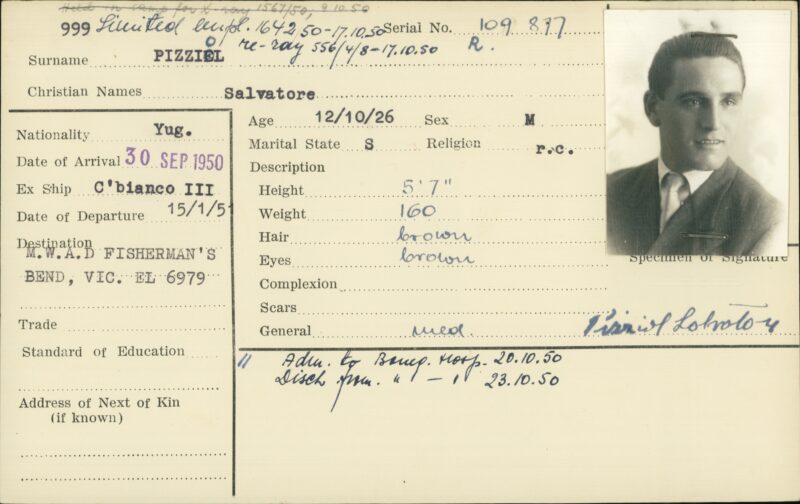 Held in camp for X-ray 1567/50, 9.10.50
999 Limited empl. 1642 50-17.10.50 Serial No. 109 837
re-xray 556/4/8-17.10.50 R.
Surname PIZZIOL
Christian Names Salvatore
Nationality Yug.
Date of Arrival 30 SEP 1950
Ex Ship C'bianco III
Date of Departure 15/1/51
Destination
M.W.A.D FISHERMAN'S
BEND, VIC. EL 6979
Trade
Standard of Education
Address of Next of Kin
(if known)
Age 12/10/26 Sex M
Marital State S Religion r.c.
Description
Height 5'7"
Weight 160
Hair brown
Eyes brown
Complexion
Scars
General med
Specimen of Signature
Pizziol Salvatore
11 Adm. to Boneg. Hosp. 20.10.50
Disch from. " - " 23.10.50